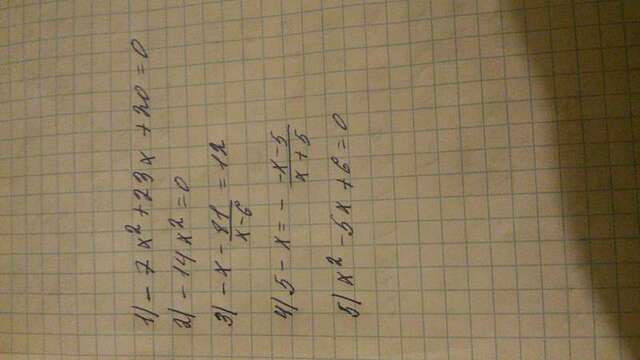 1) - 7x² + 23x + 20 = 0
2) - 14x² = 0
3) - x - 81/(x-6) = 12
4) 5 - x = - (-x-5)/(x+5)
5) x² - 5x + 6 = 0